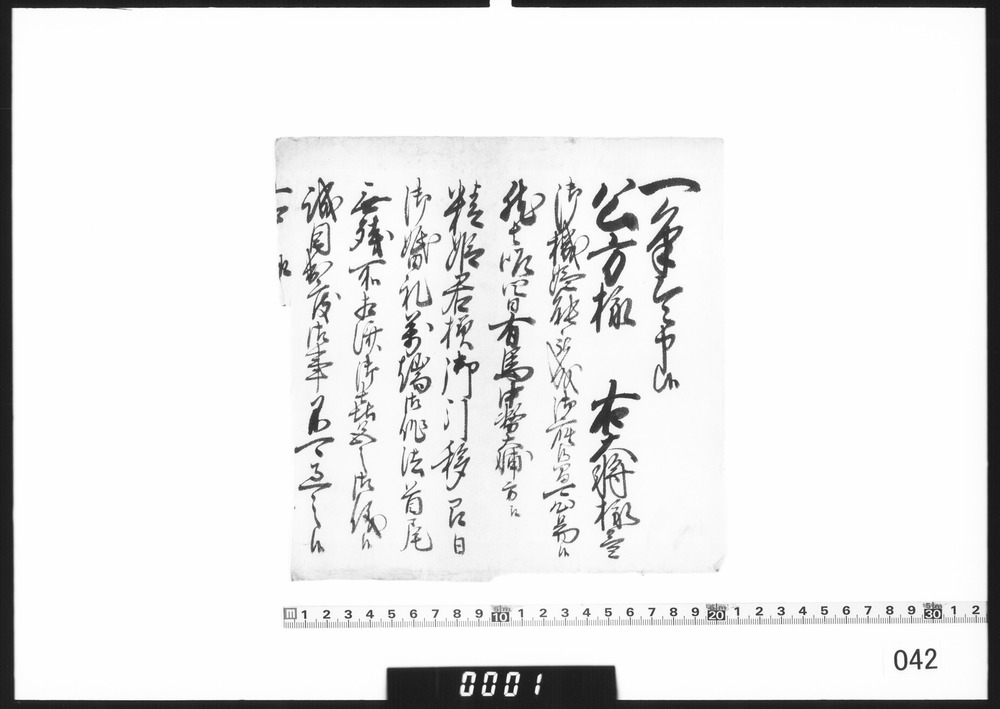 一筆令申候
公方様 右大将様益
御機嫌能被成御座候間可心易候
然者
有馬中務大輔方江
精姫君様御引移即日
御婚礼万端御作法首尾
無残所相済御喜色之御儀候
誠目出度御事
m 1 2 3 4 5 6 7 8 9 10 1 2 3 4 5 6 7 8 9 20 1 2 3 4 5 6 7 8 9 30 1 2
042
0001